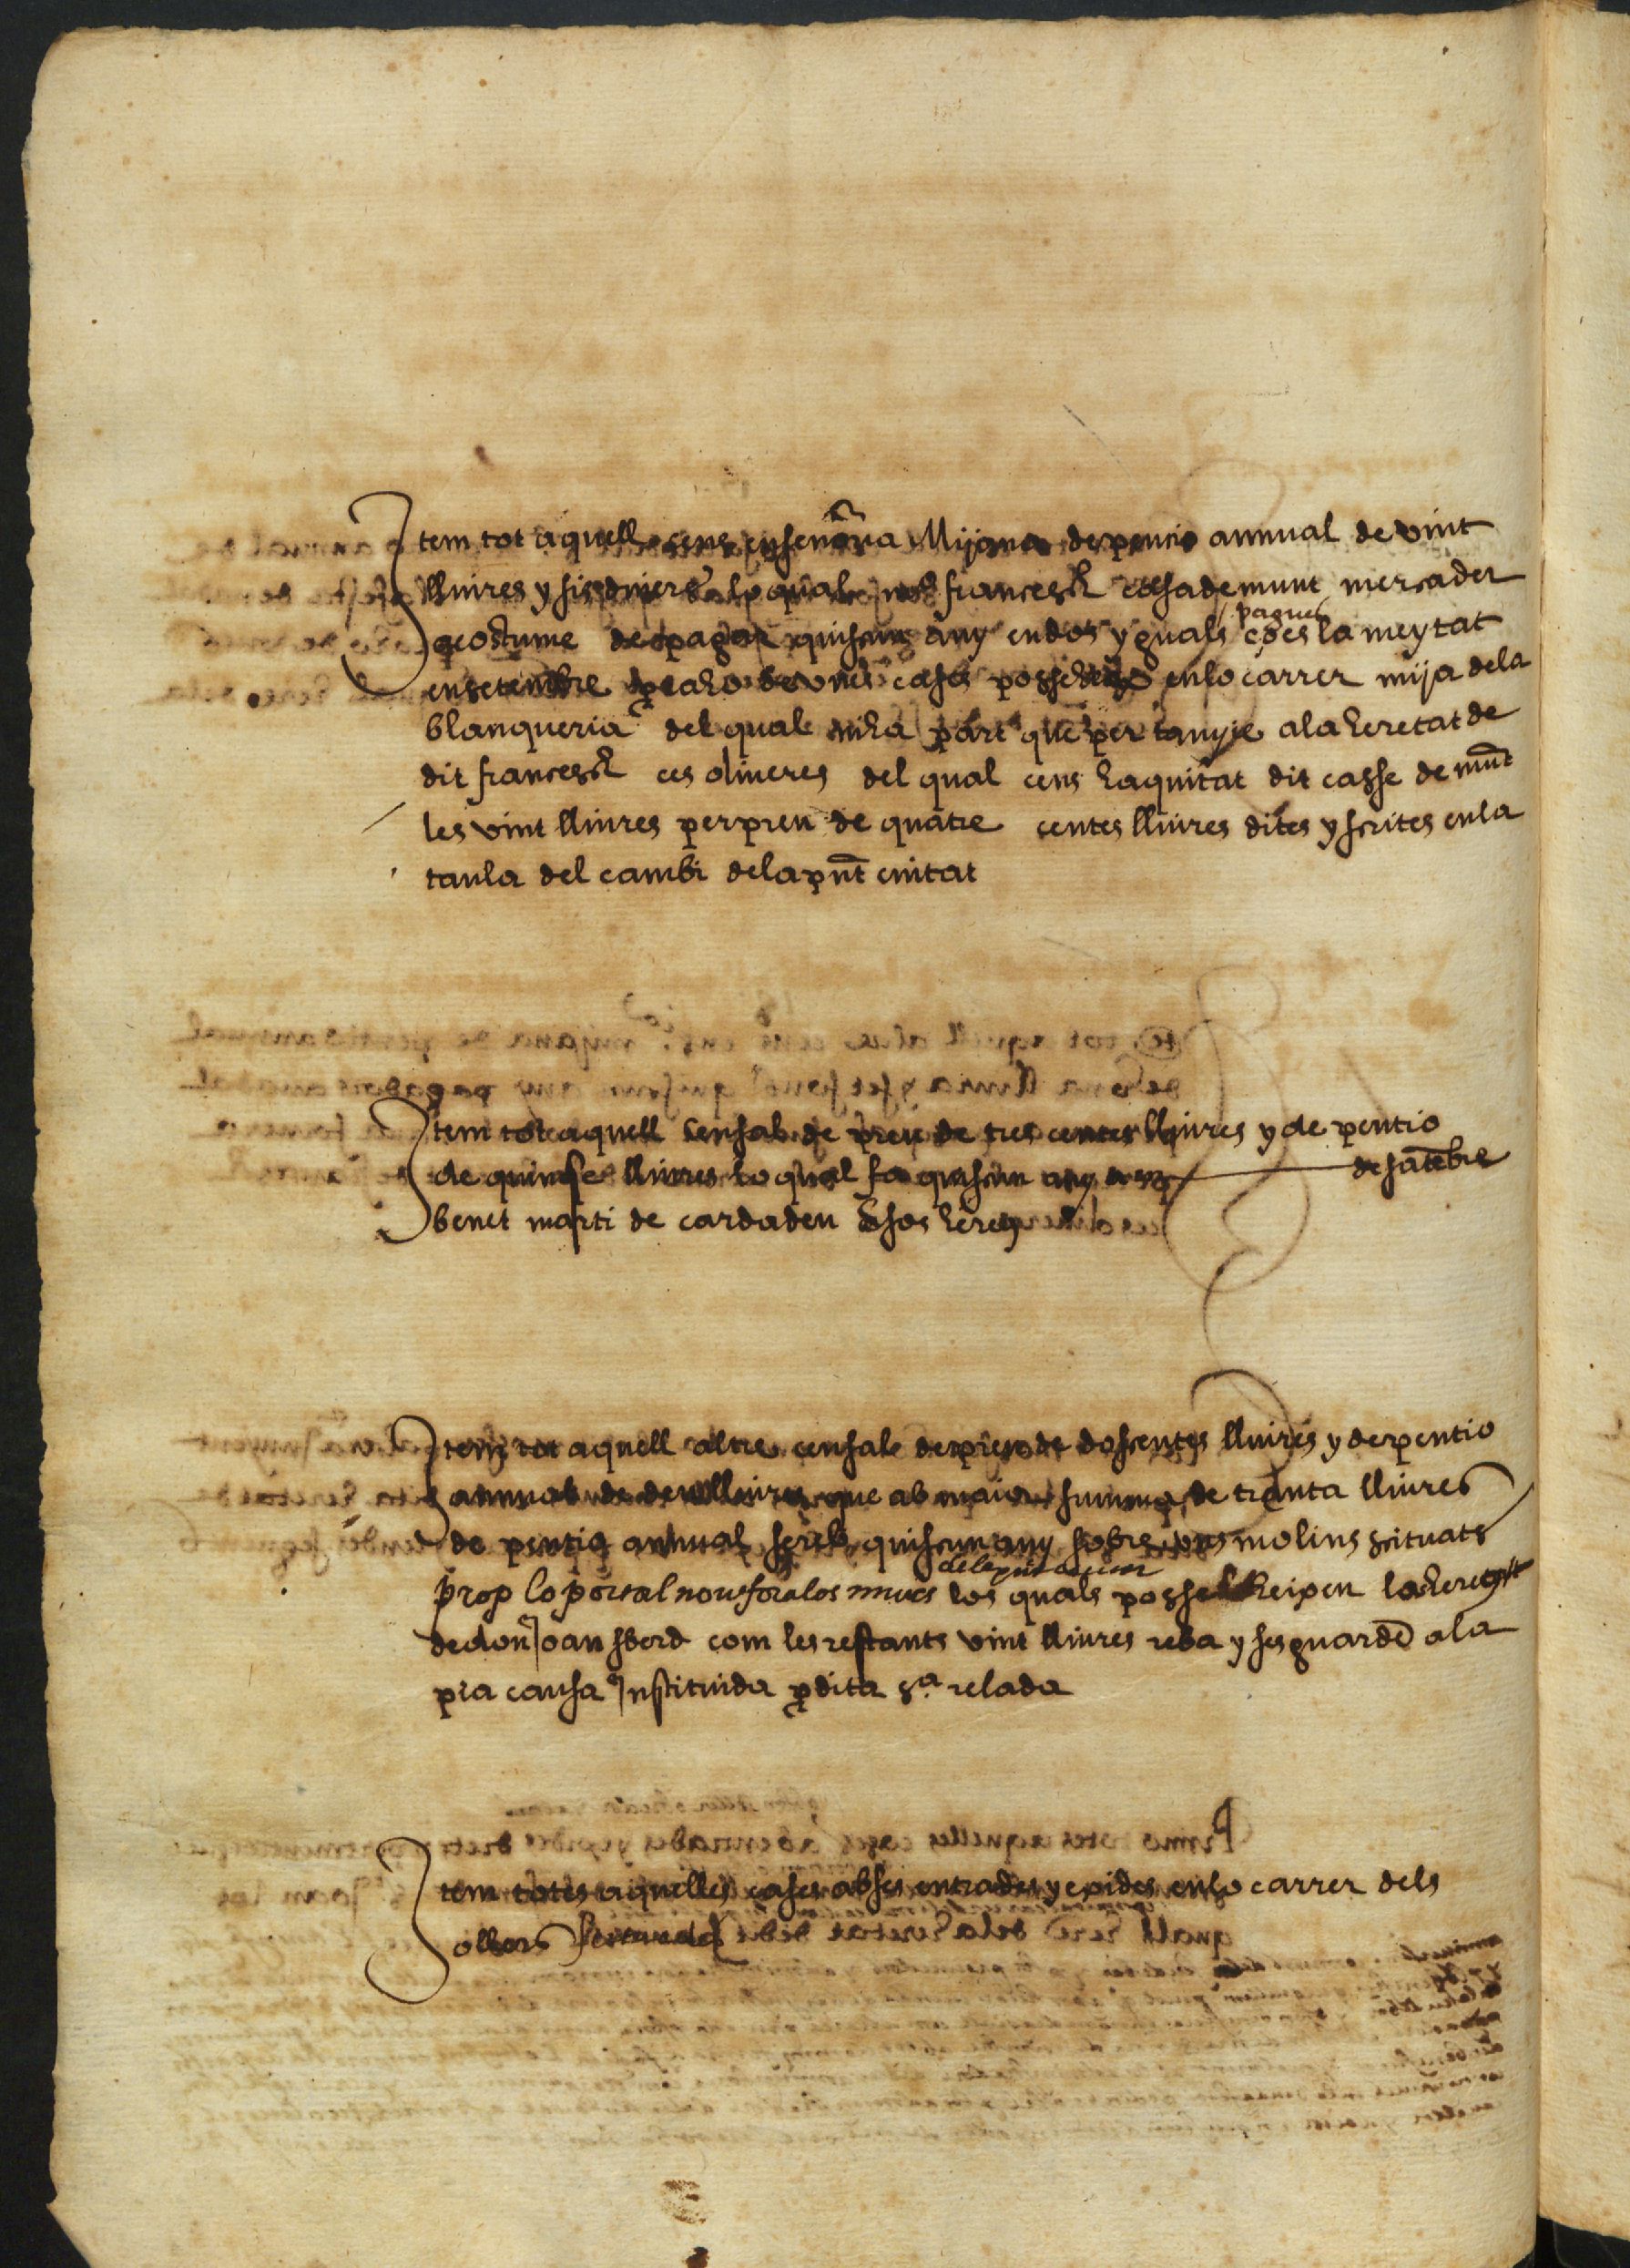 Item tot aquell cens en senõria Mijana de pencio annual de vint
lliures y sis diners lo qual mos francesch casademunt mercader
acostume de pagar quiscun any en dos yguals pagues ço es la meytat
en setembre per raho de unes cases posseheix en lo carrer mija dela
blanqueria del qual ni ha part que pertanyie ala heretat de
dit francesch ces oliueres del qual cens ha quitat dit casse de mũt
les vint lliures per preu de quatre centes lliures dites y scrites en la
taula del cambi dela pñt ciutat
Item tot aquell censal de preu de tres centes lliures y de pentio
de quinse lliures lo qual fa quiscun any a desatebre
benet marti de cardadeu & sos hereus
Item tot aquell altre censal de preu de doscentes lliures y de pentio
annual de deu lliures que ab maior summa de trenta lliures
de pentio annual se reb quiscun any sobre uns molins scituats
prop lo portal nou fora los murs los quals posseheixen los hereus
de don Joan sbert com les restants vint lliures reba y sesguarde a la
pia causa Instituida per dita sª. relada
Item totes aquelles cases ab ses entrades y exides en lo carrer dels
ollers scituades